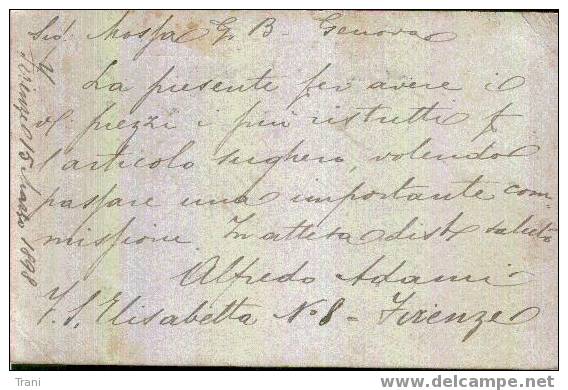 Sig. Mossa G. B. Genova
La presente per avere i
vs. prezzi i più ristretti p
l'articolo sughero, volendo
passare una importante com-
missione. In attesa dist saluto
Alfredo Adami
V. S. Elisabetta No 8 - Firenze
Firenze 15 Marzo 1898
Trani
delcampe.net